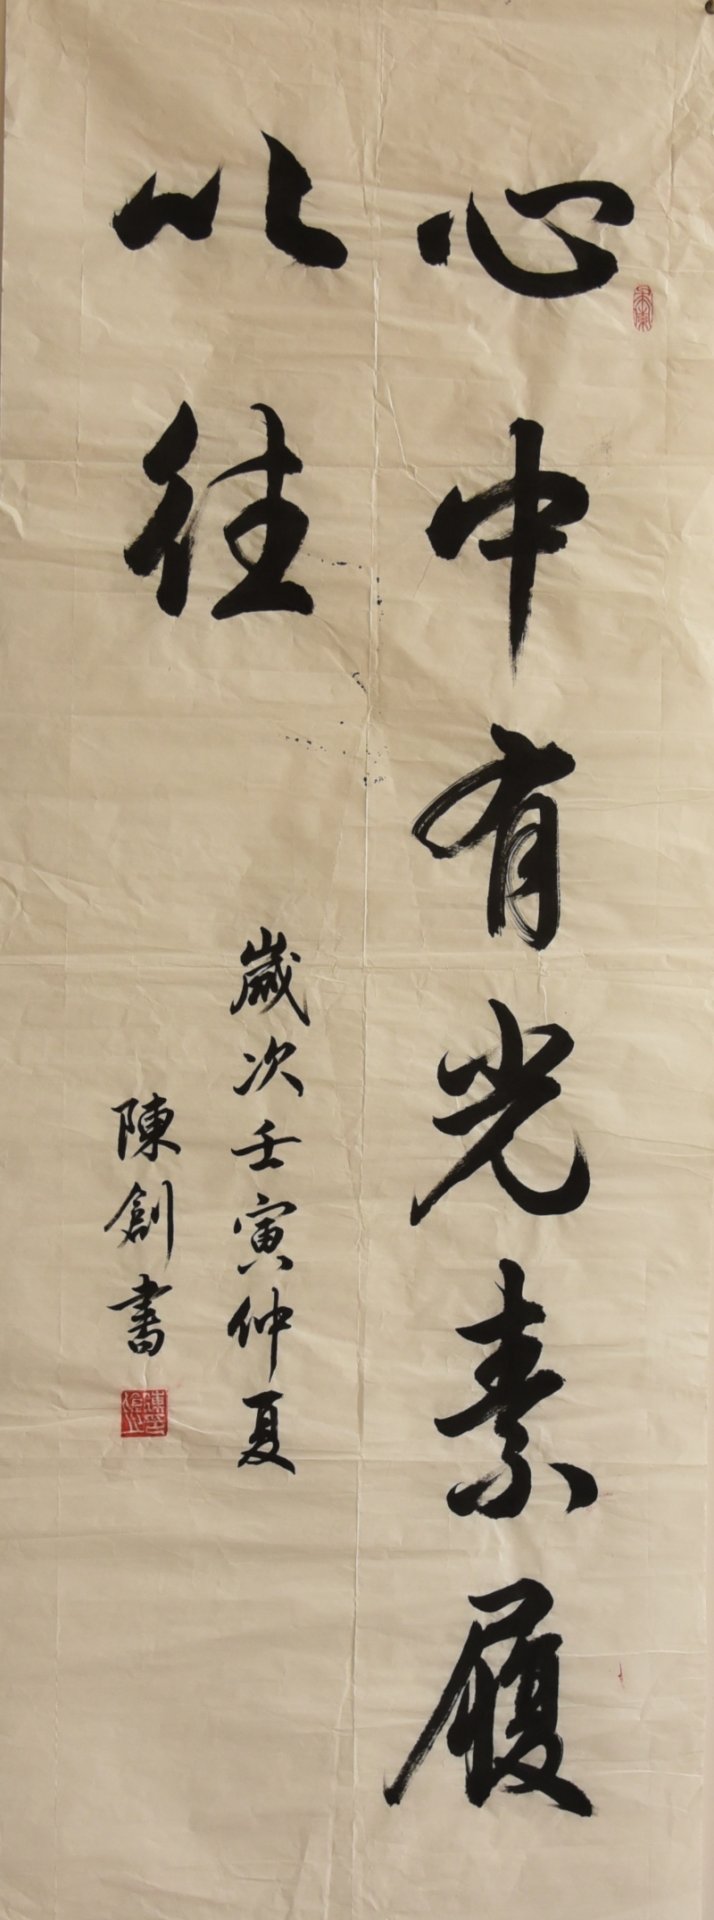 心中有光素履
以往
歲次壬寅仲夏
陳創書